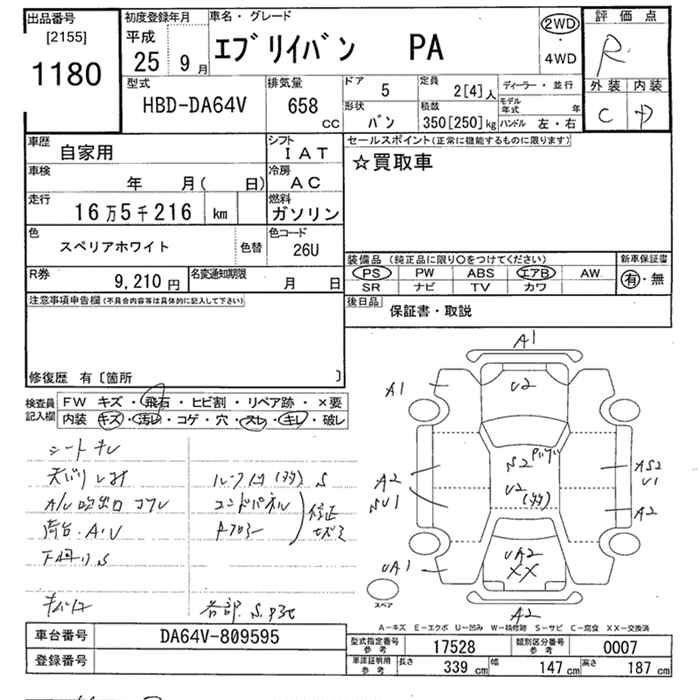 出品番号
[2155]
1180
初度登録年月
平成
25 9月
車名・グレード
エブリイバン PA
2WD
・
4WD
評価点
R
外装 内装
C 中
型式
HBD-DA64V
排気量
658 CC
ドア 5
定員 2[4]人
ディーラー・並行
モデル年式 年
形状 バン
積載 350[250]kg
ハンドル 左・右
車歴
自家用
シフト
IAT
セールスポイント(正常に機能するものに限ります)
☆買取車
車検
年 月( 日)
冷房
AC
走行
16万5千216 km
燃料
ガソリン
色
スペリアホワイト
色替
色コード
26U
装備品 (純正品に限り○をつけてください)
新車保証書
PS PW ABS エアB AW
有・無
SR ナビ TV カワ
R券
9,210円
名変通知期限
月 日
後日品
保証書・取説
注意事項申告欄(不具合内容等は具体的に記入して下さい)
修復歴 有〔箇所 〕
検査員記入欄
FW キズ・飛石・ヒビ割・リペア跡・×要
内装 キズ・汚れ・コゲ・穴・スレ・キレ・破レ
シートキレ
天バリしみ
A/C吹出口コワレ
荷台.A.U
下廻りS
ルーフ S
コンドパネル
修正
各部.S
A1
A1
U2
A2
U2
AS2
U1
A2
UA1
UA2
××
A2
スペア
A-キズ E-エクボ U-凹ミ W-補修跡 S-サビ C-腐食 XX-交換済
車台番号
DA64V-809595
登録番号
型式指定番号 参考
17528
類別区分番号 参考
0007
車庫証明用 参考
長さ 339 cm
幅 147 cm
高さ 187 cm